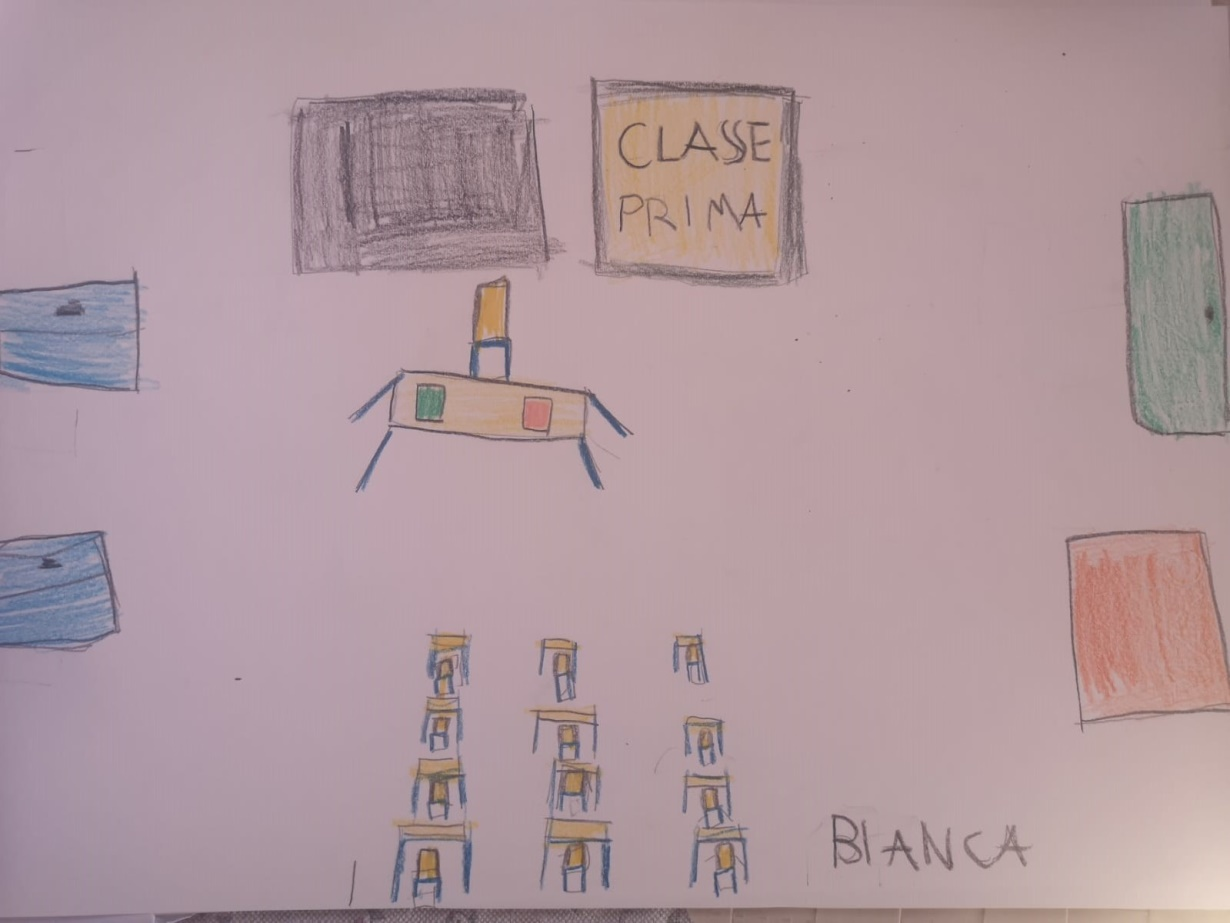 CLASSE
PRIMA
BIANCA